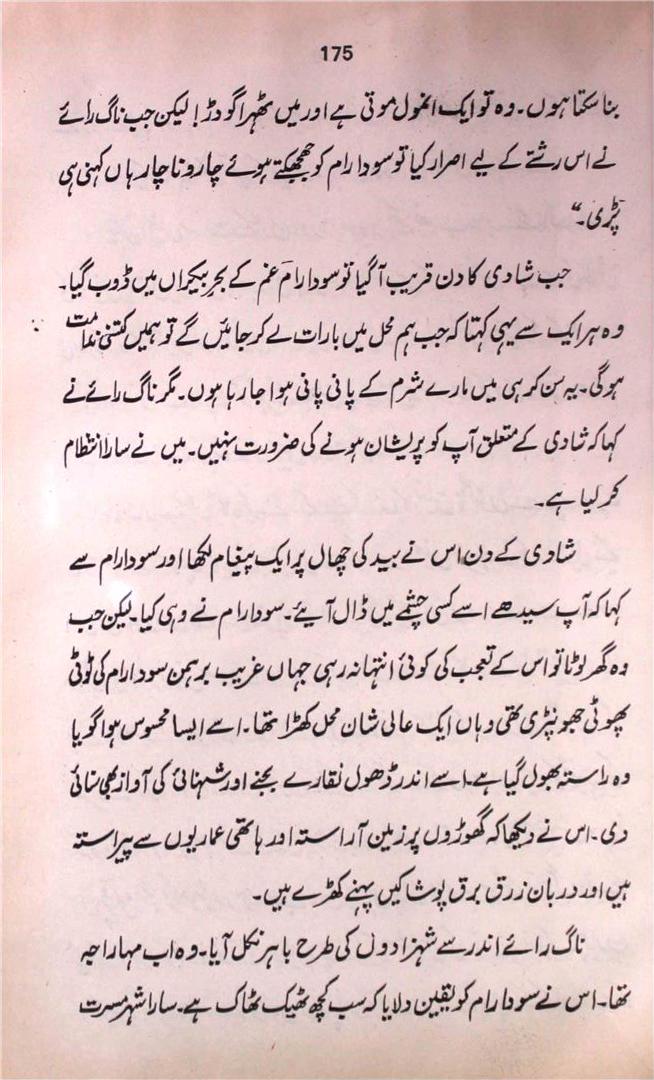 175
بنا سکتا ہوں۔ وہ تو ایک انمول موتی ہے اور میں ٹھہرا گودڑ! لیکن جب ناگ رائے
نے اس رشتے کے لیے اصرار کیا تو سودا رام کو جھجکتے ہوئے چار و ناچار ہاں کہنی ہی
پڑی۔“
جب شادی کا دن قریب آگیا تو سودا رام غم کے بحرِ بیکراں میں ڈوب گیا۔
وہ ہر ایک سے یہی کہتا کہ جب ہم محل میں بارات لے کر جائیں گے تو ہمیں کتنی ندامت
ہوگی۔ یہ سن کر ہی میں مارے شرم کے پانی پانی ہوا جا رہا ہوں۔ مگر ناگ رائے نے
کہا کہ شادی کے متعلق آپ کو پریشان ہونے کی ضرورت نہیں۔ میں نے سارا انتظام
کر لیا ہے۔
شادی کے دن اس نے بید کی چھال پر ایک پیغام لکھا اور سودا رام سے
کہا کہ آپ سیدھے اسے کسی چشمے میں ڈال آیئے۔ سودا رام نے وہی کیا۔ لیکن جب
وہ گھر لوٹا تو اس کے تعجب کی کوئی انتہا نہ رہی جہاں غریب برہمن سودا رام کی ٹوٹی
پھوٹی جھونپڑی تھی وہاں ایک عالی شان محل کھڑا تھا۔ اسے ایسا محسوس ہوا گویا
وہ راستہ بھول گیا ہے۔ اسے اندر ڈھول نقارے بجنے اور شہنائی کی آواز بھی سنائی
دی۔ اس نے دیکھا کہ گھوڑوں پر زین آراستہ اور ہاتھی عماریوں سے پیراستہ
ہیں اور دربان زرق برق پوشاکیں پہنے کھڑے ہیں۔
ناگ رائے اندر سے شہزادوں کی طرح باہر نکل آیا۔ وہ اب مہاراجہ
تھا۔ اس نے سودا رام کو یقین دلایا کہ سب کچھ ٹھیک ٹھاک ہے۔ سارا شہر مسرت